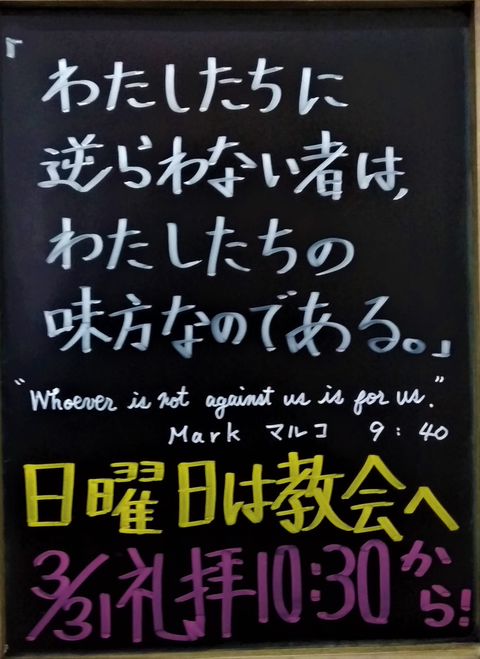 「わたしたちに
逆らわない者は,
わたしたちの
味方なのである。」
"Whoever is not against us is for us."
Mark マルコ 9:40
日曜日は教会へ
3/31礼拝10:30から!